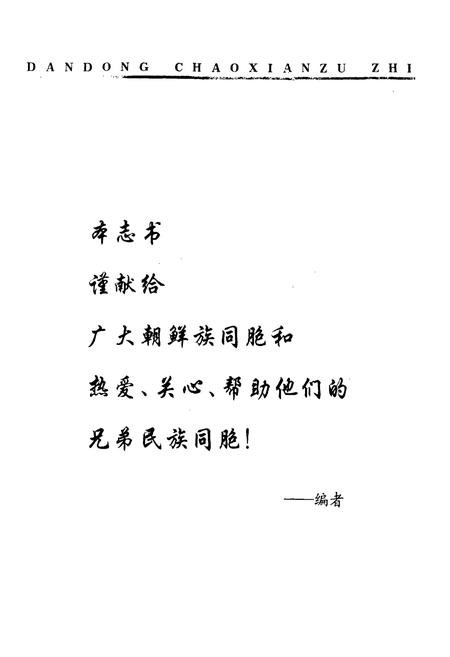 DANDONG CHAOXIANZU ZHI
本志书
谨献给
广大朝鲜族同胞和
热爱、关心、帮助他们的
兄弟民族同胞!
——编者